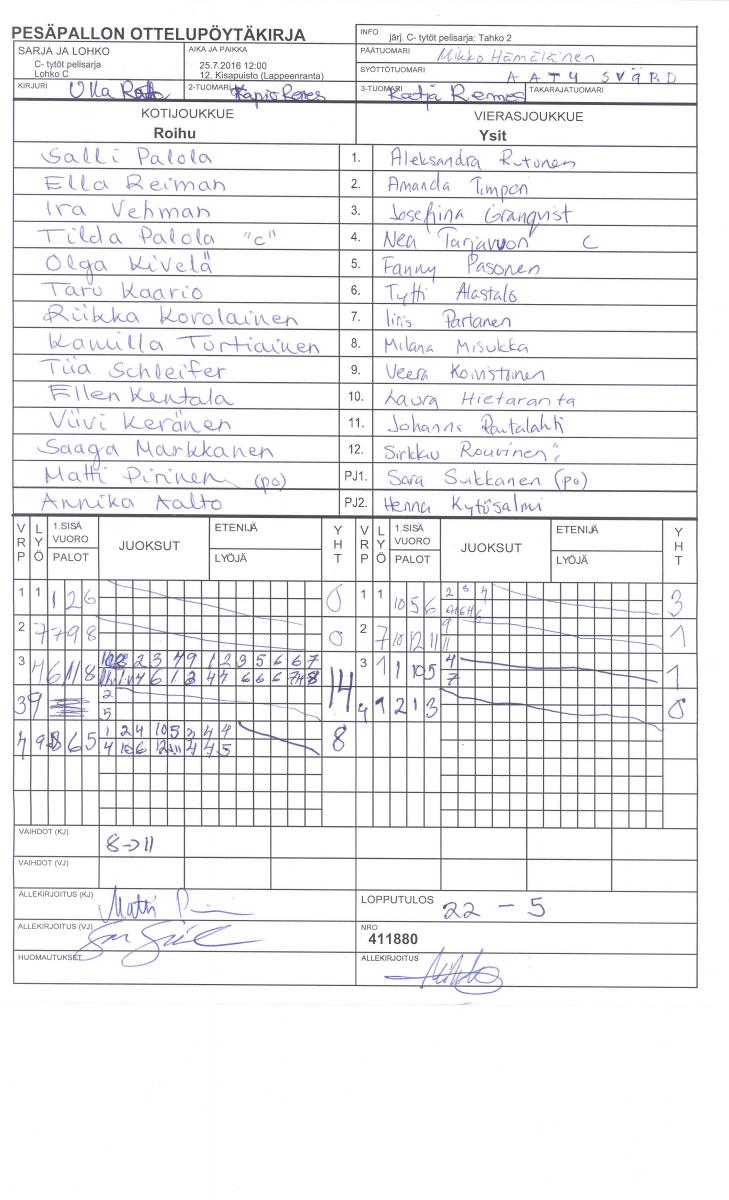 PESÄPALLON OTTELUPÖYTÄKIRJA
INFO järj. C- tytöt pelisarja: Tahko 2
SARJA JA LOHKO
C- tytöt pelisarja
Lohko C
AIKA JA PAIKKA
25.7.2016 12:00
12. Kisapuisto (Lappeenranta)
PÄÄTUOMARI Mikko Hämäläinen
SYÖTTÖTUOMARI AATU SVÄRD
KIRJURI Ulla
2-TUOMARI
3-TUOMARI Katja Remes
TAKARAJATUOMARI
KOTIJOUKKUE
Roihu
VIERASJOUKKUE
Ysit
Salli Palola 1. Aleksandra Rutonen
Ella Reiman 2. Amanda Timperi
Ira Vehman 3. Josefiina Granqvist
Tilda Palola "c" 4. Nea C
Olga Kivelä 5. Fanny Pasonen
Taru Kaario 6. Tytti Alastalo
Riikka Korolainen 7. Iiris Partanen
Kamilla Tortiainen 8. Milana Misukka
Tiia Schleifer 9. Veera Koivistoinen
Ellen Kentala 10. Laura Hietaranta
Viivi Keränen 11. Johanna Rautalahti
Saaga Markkanen 12. Sirkku Rouvinen
Matti Pirinen (po) PJ1. Sara Suikkanen (po)
Annika Aalto PJ2. Henna Kytösalmi
VRP LYÖ 1.SISÄ VUORO PALOT JUOKSUT ETENIJÄ LYÖJÄ YHT VRP LYÖ 1.SISÄ VUORO PALOT JUOKSUT ETENIJÄ LYÖJÄ YHT
1 1 1 2 6 0 1 1 10 5 6 2 3 4 3
2 7 7 9 8 0 2 7 10 12 11 9 11 1
3 4 6 11 8 2 3 4 9 1 2 3 5 6 6 7 14 3 1 1 10 5 4 7 1
3 9 2 5 4 9 2 1 3 0
4 9 8 6 5 1 2 4 10 5 3 4 4 8
VAIHDOT (KJ) 8->11
VAIHDOT (VJ)
ALLEKIRJOITUS (KJ) Matti
LOPPUTULOS 22 - 5
ALLEKIRJOITUS (VJ)
NRO
411880
HUOMAUTUKSET
ALLEKIRJOITUS